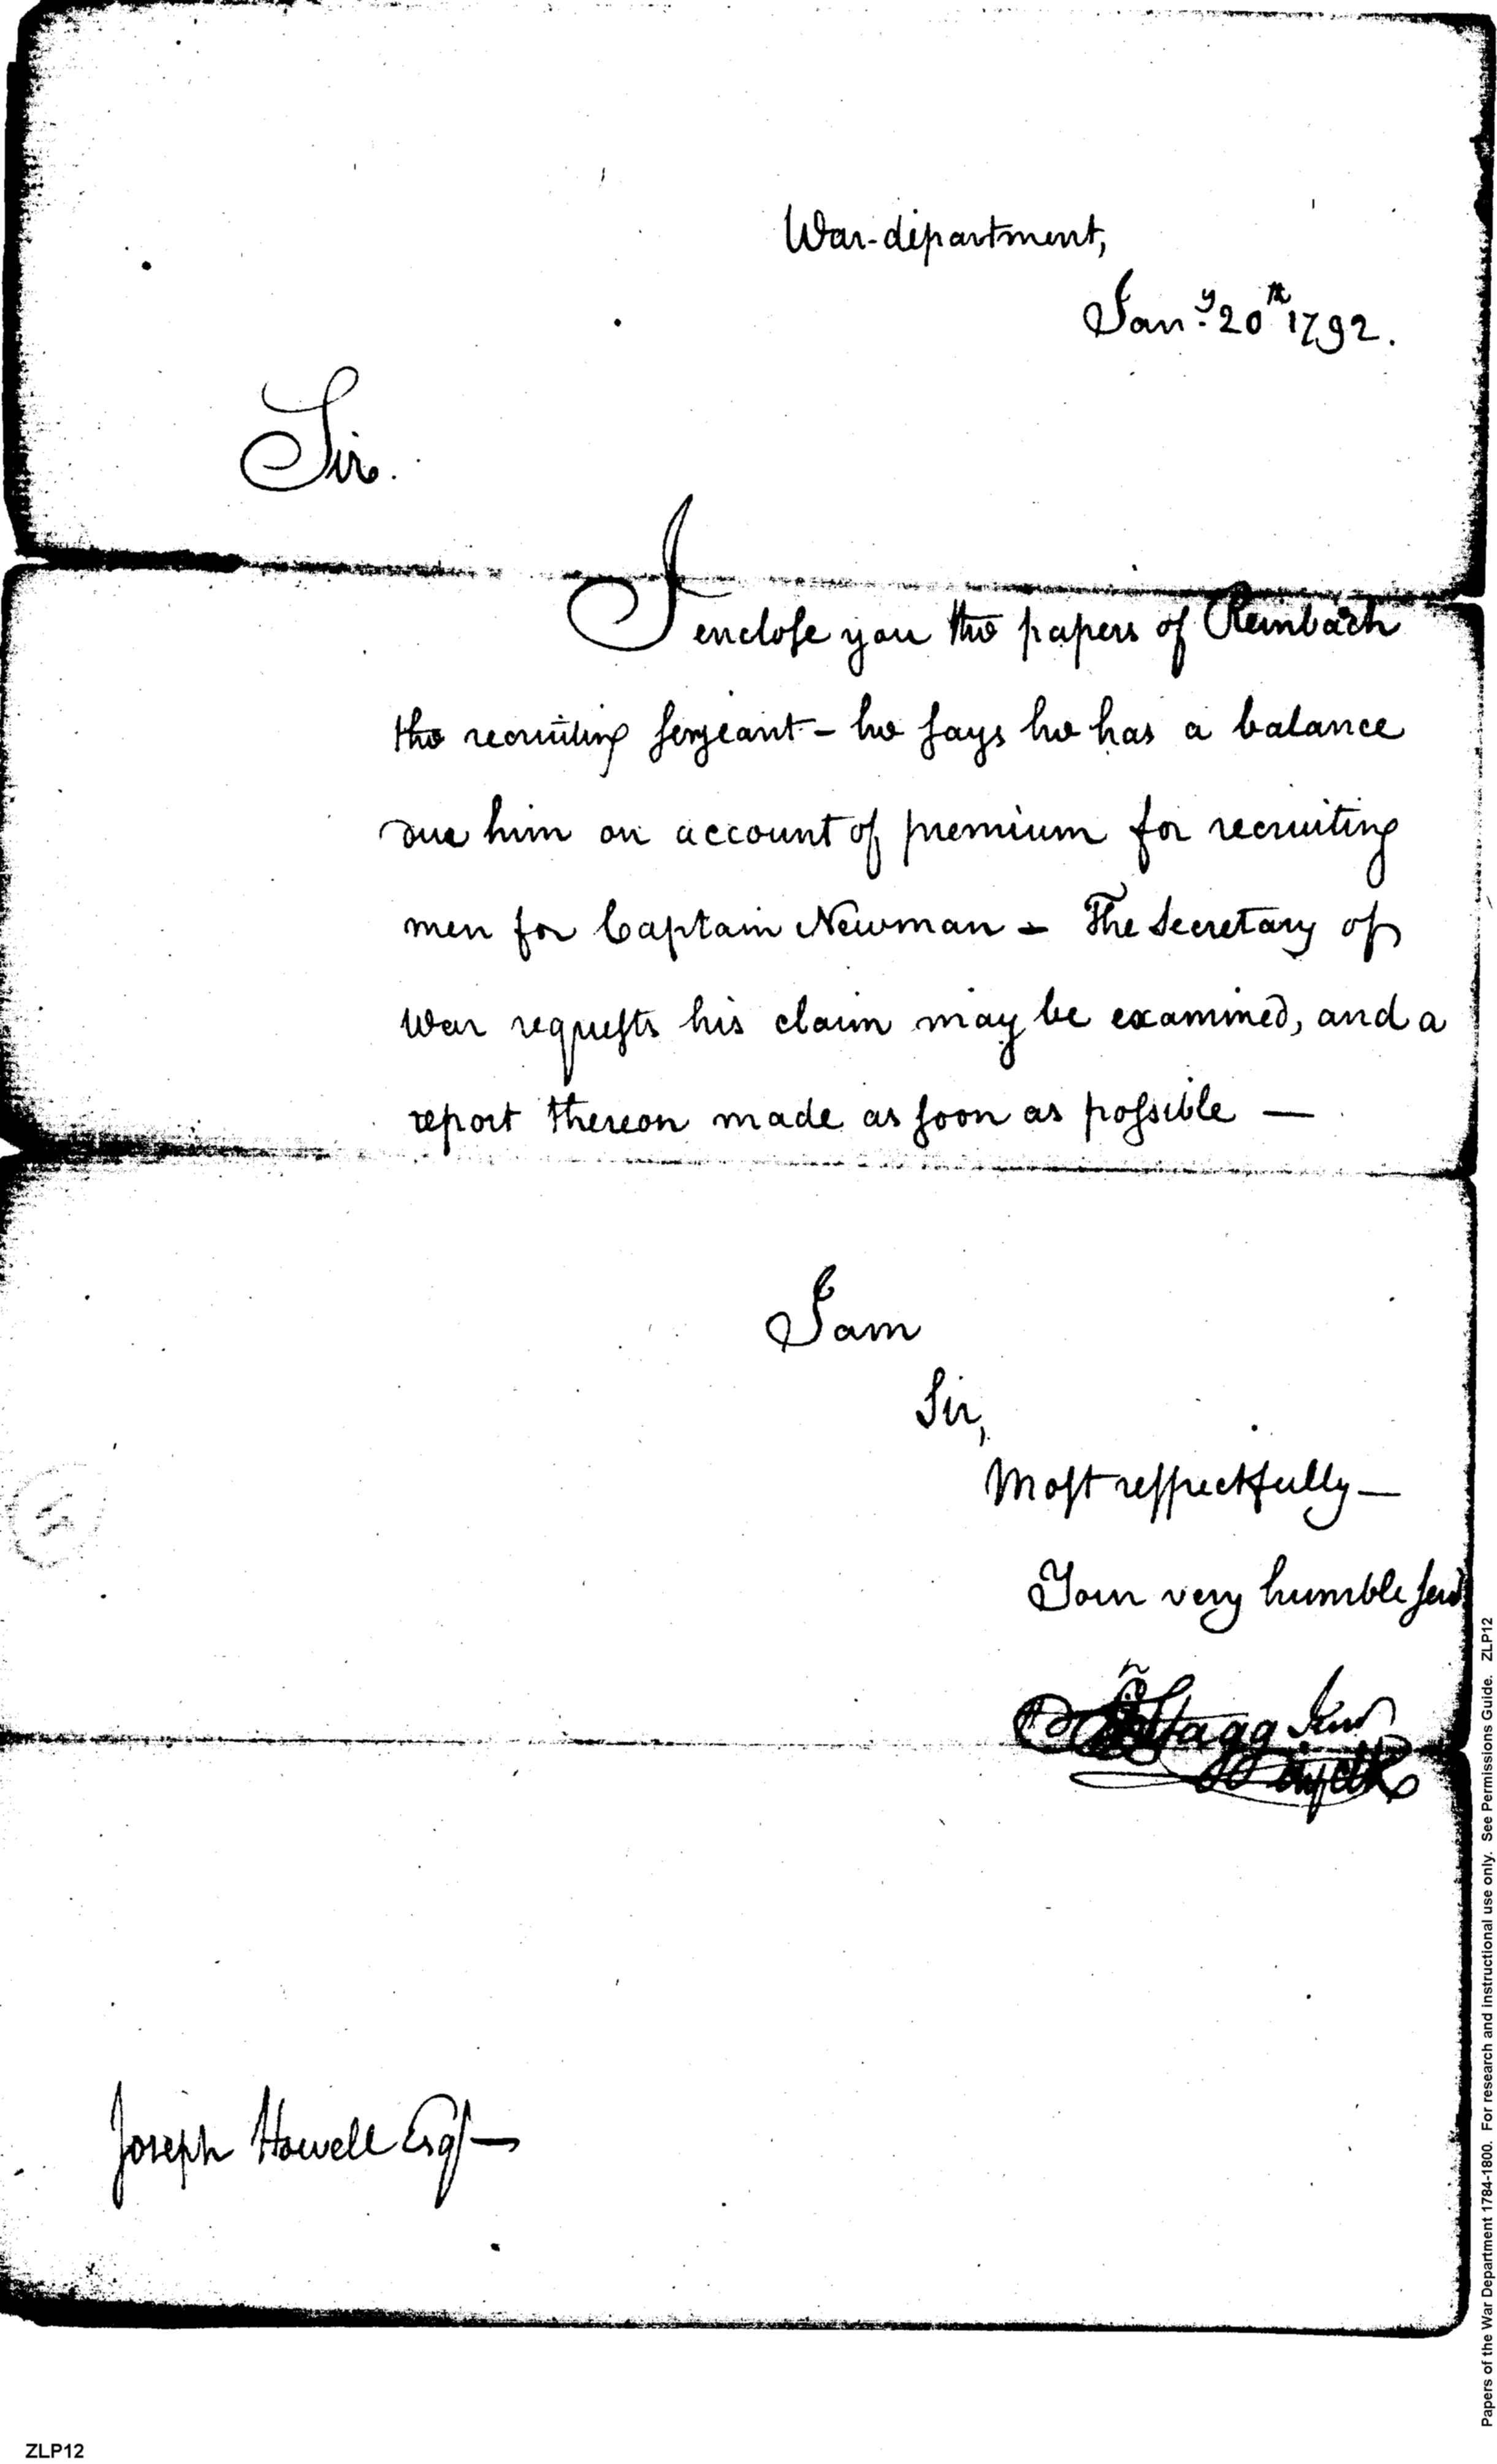 War-department,
Jan.y 20th 1792.
Sir.
I enclose you the papers of Reinbach
the recruiting sergeant - he says he has a balance
due him on account of premium for recruiting
men for Captain Newman - The Secretary of
War requests his claim may be examined, and a
report thereon made as soon as possible —
I am
Sir,
Most respectfully —
Your very humble serv
Stagg Junr
Joseph Howell Esqr —
Papers of the War Department 1784-1800. For research and instructional use only. See Permissions Guide. ZLP12
ZLP12